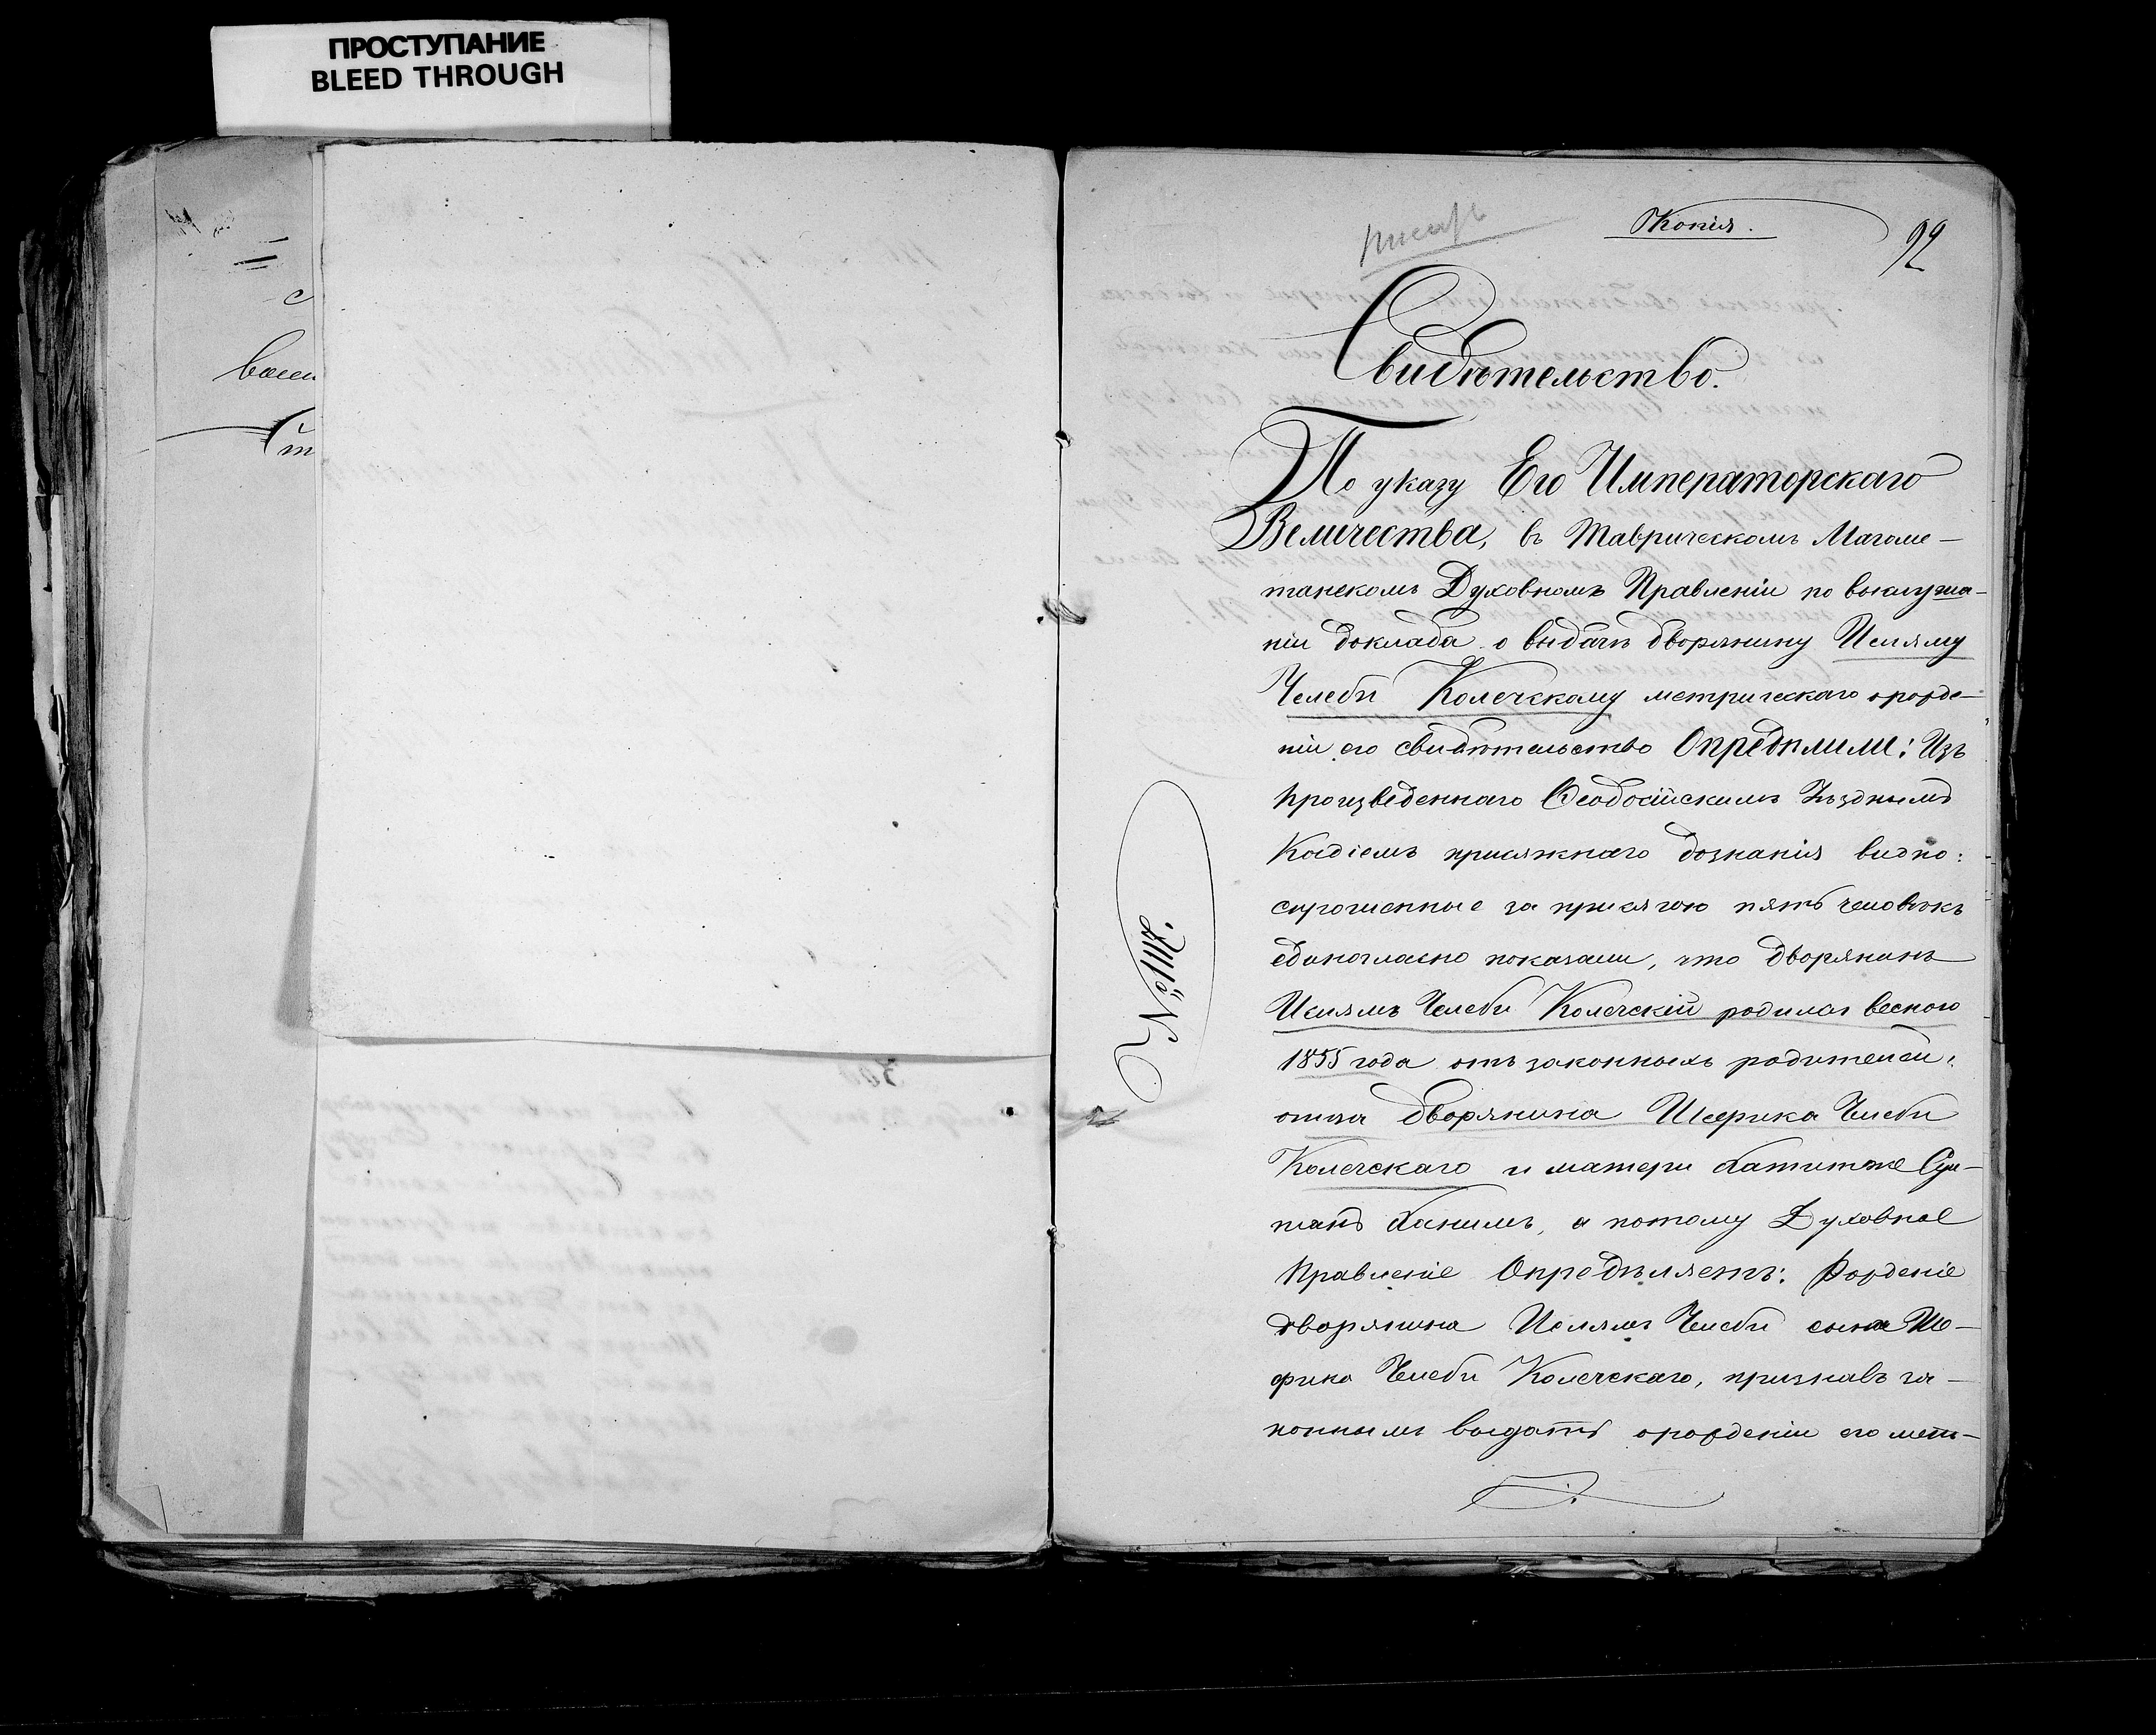 ПРОСТУПАНИЕ
BLEED THROUGH
васи
Копія.
92
Свидѣтельство.
По указу Его Императорскаго
Величества, въ Таврическомъ Магоме-
танскомъ Духовномъ Правленіи по выслуша-
ніи доклада о выдачѣ дворянину Ислямy
Челеби Колечскому метрическаго орожде-
ніи его свидѣтельство Опредѣлили: Изъ
произведеннаго Ѳеодосійскимъ Уѣзднымъ
Кадіемъ присяжнаго дознанія видно:
спрошенные за присягою пять человѣкъ
единогласно показали, что дворянинъ
Ислямъ Челеби Колечскій родился весною
1855 года отъ законныхъ родителей:
отца дворянина Шефика Челеби
Колечскаго и матери Хатитже Сул-
танъ Ханымъ, а потому Духовное
Правленіе Опредѣляетъ: Рожденіе
дворянина Ислямъ Челеби сына Ше-
фика Челеби Колечскаго, признавъ за-
коннымъ выдать орожденіи его мет-